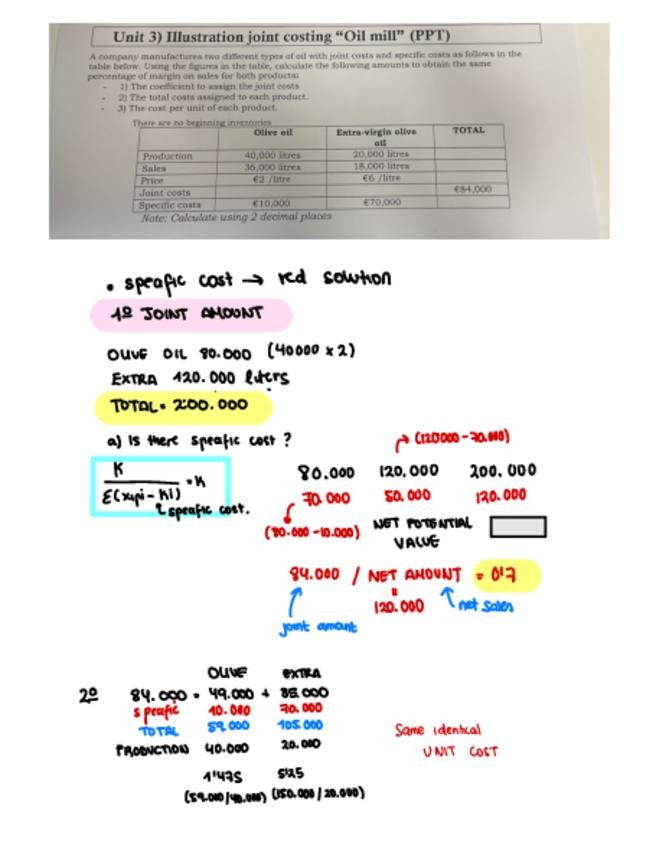 Unit 3) Illustration joint costing “Oil mill” (PPT)
A company manufactures two different types of oil with joint costs and specific costs as follows in the
table below. Using the figures in the table, calculate the following amounts to obtain the same
percentage of margin on sales for both products:
- 1) The coefficient to assign the joint costs
- 2) The total costs assigned to each product.
- 3) The cost per unit of each product.
There are no beginning inventories
Olive oil Extra-virgin olive oil TOTAL
Production 40,000 litres 20,000 litres
Sales 36,000 litres 18,000 litres
Price €2 /litre €6 /litre
Joint costs €84,000
Specific costs €10,000 €70,000
Note: Calculate using 2 decimal places
• speafic cost → red solution
1º JOINT AMOUNT
OLIVE OIL 80.000 (40000 x 2)
EXTRA 120.000 liters
TOTAL = 200.000
a) Is there speafic cost ?
(120000 - 70.000)
K
Σ(xipi - Ki) = K
speafic cost.
80.000 120.000 200.000
70 000 50.000 120.000
(80.000 - 10.000)
NET POTENTIAL
VALUE
84.000 / NET AMOUNT = 0'7
120.000
net sales
joint amount
OLIVE EXTRA
2º 84.000 = 49.000 + 35.000
speafic 10.000 70.000
TOTAL 59.000 105.000
PRODUCTION 40.000 20.000
1'475 5'25
(59.000/40.000) (150.000/20.000)
Same identical
UNIT COST